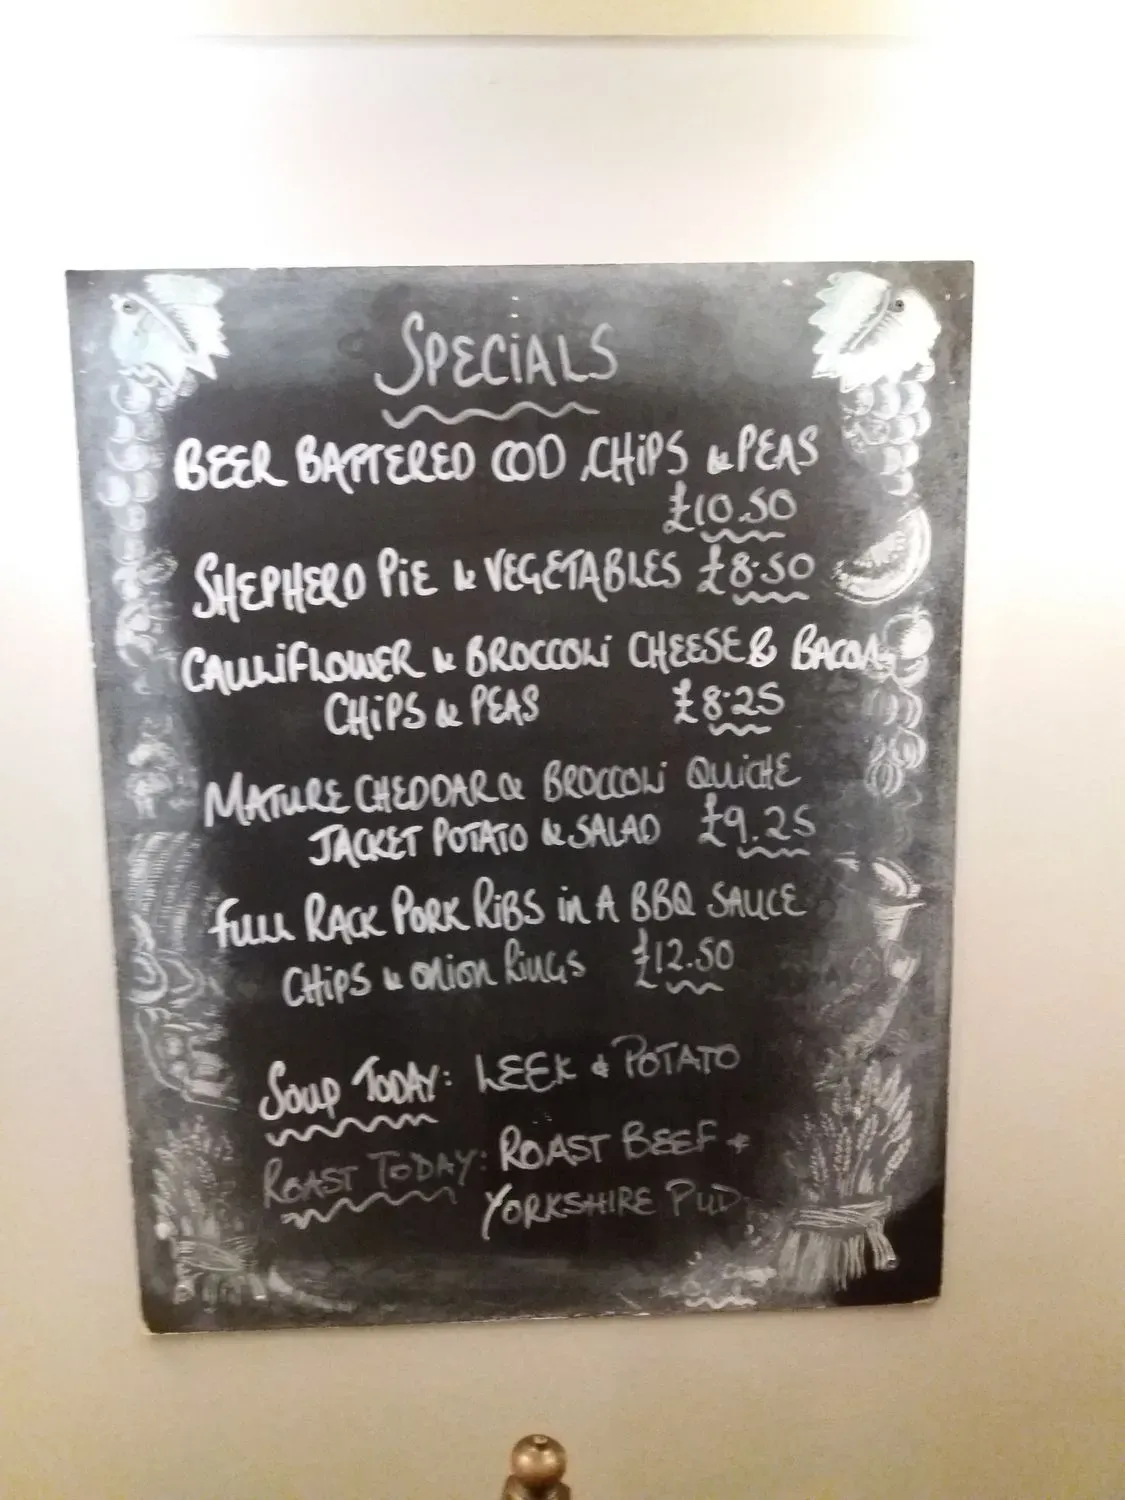 SPECiALS
BEER BATTERED COD, CHiPS & PEAS
£10.50
SHEPHERD PiE & VEGETABLES £8.50
CAULiFLOWER & BROCCOLi CHEESE & BACON
CHiPS & PEAS £8.25
MATURE CHEDDAR & BROCCOLi QUiCHE
JACKET POTATO & SALAD £9.25
FULL RACK PORK RiBS in A BBQ SAUCE
CHiPS & ONiON RiNGS £12.50
SOUP TODAY: LEEK & POTATO
ROAST TODAY: ROAST BEEF &
YORKSHIRE PUD